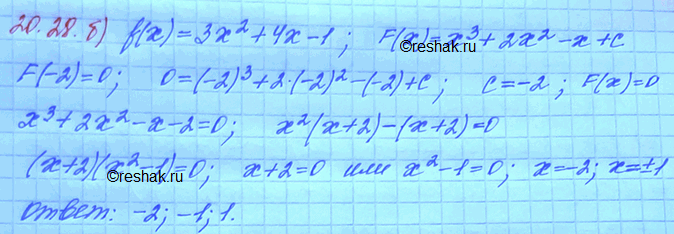 20.28.б) f(x)=3x²+4x-1; F(x)=x³+2x²-x+C
©reshak.ru
F(-2)=0; 0=(-2)³+2·(-2)²-(-2)+C; C=-2; F(x)=0
x³+2x²-x-2=0; x²(x+2)-(x+2)=0
(x+2)(x²-1)=0; x+2=0 или x²-1=0; x=-2; x=±1
©reshak.ru
Ответ: -2; -1; 1.